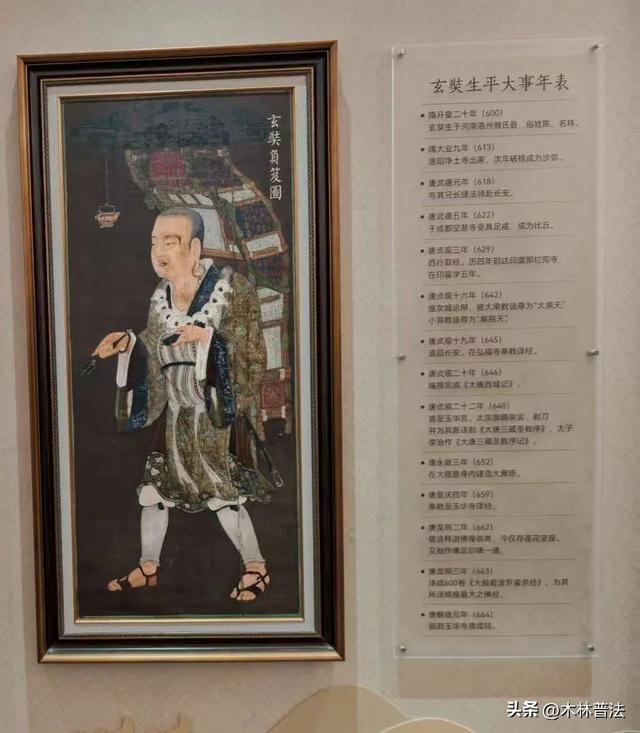 玄奘负笈圖
玄奘生平大事年表
隋开皇二十年（600）
玄奘生于河南洛州缑氏县 俗姓陈，名祎。
隋大业九年（613）
洛阳净土寺出家，次年破格成为沙弥。
唐武德元年（618）
与其兄长捷法师赴长安。
唐武德五年（622）
于成都空慧寺受具足戒，成为比丘。
唐贞观三年（629）
西行取经，历四年到达印度那烂陀寺，
在印留学五年。
唐贞观十六年（642）
曲女城论辩，被大乘教徒尊为“大乘天”，
小乘教徒尊为“解脱天”。
唐贞观十九年（645）
返回长安，在弘福寺奉敕译经。
唐贞观二十年（646）
编撰完成《大唐西域记》。
唐贞观二十二年（648）
首至玉华宫。太宗御赐袈裟、剃刀
并为其新译制《大唐三藏圣教序》，太子
李治作《大唐三藏圣教序记》。
唐永徽三年（652）
在大慈恩寺内建造大雁塔。
唐显庆四年（659）
奉敕至玉华寺译经。
唐龙朔二年（662）
敬造释迦佛像供养，今仅存莲花金座。
又制作佛足印碑一通。
唐龙朔三年（663）
译成600卷《大般若波罗蜜多经》，为其
所译规模最大之佛经。
唐麟德元年（664）
圆寂玉华寺肃成院。
头条 @木林普法